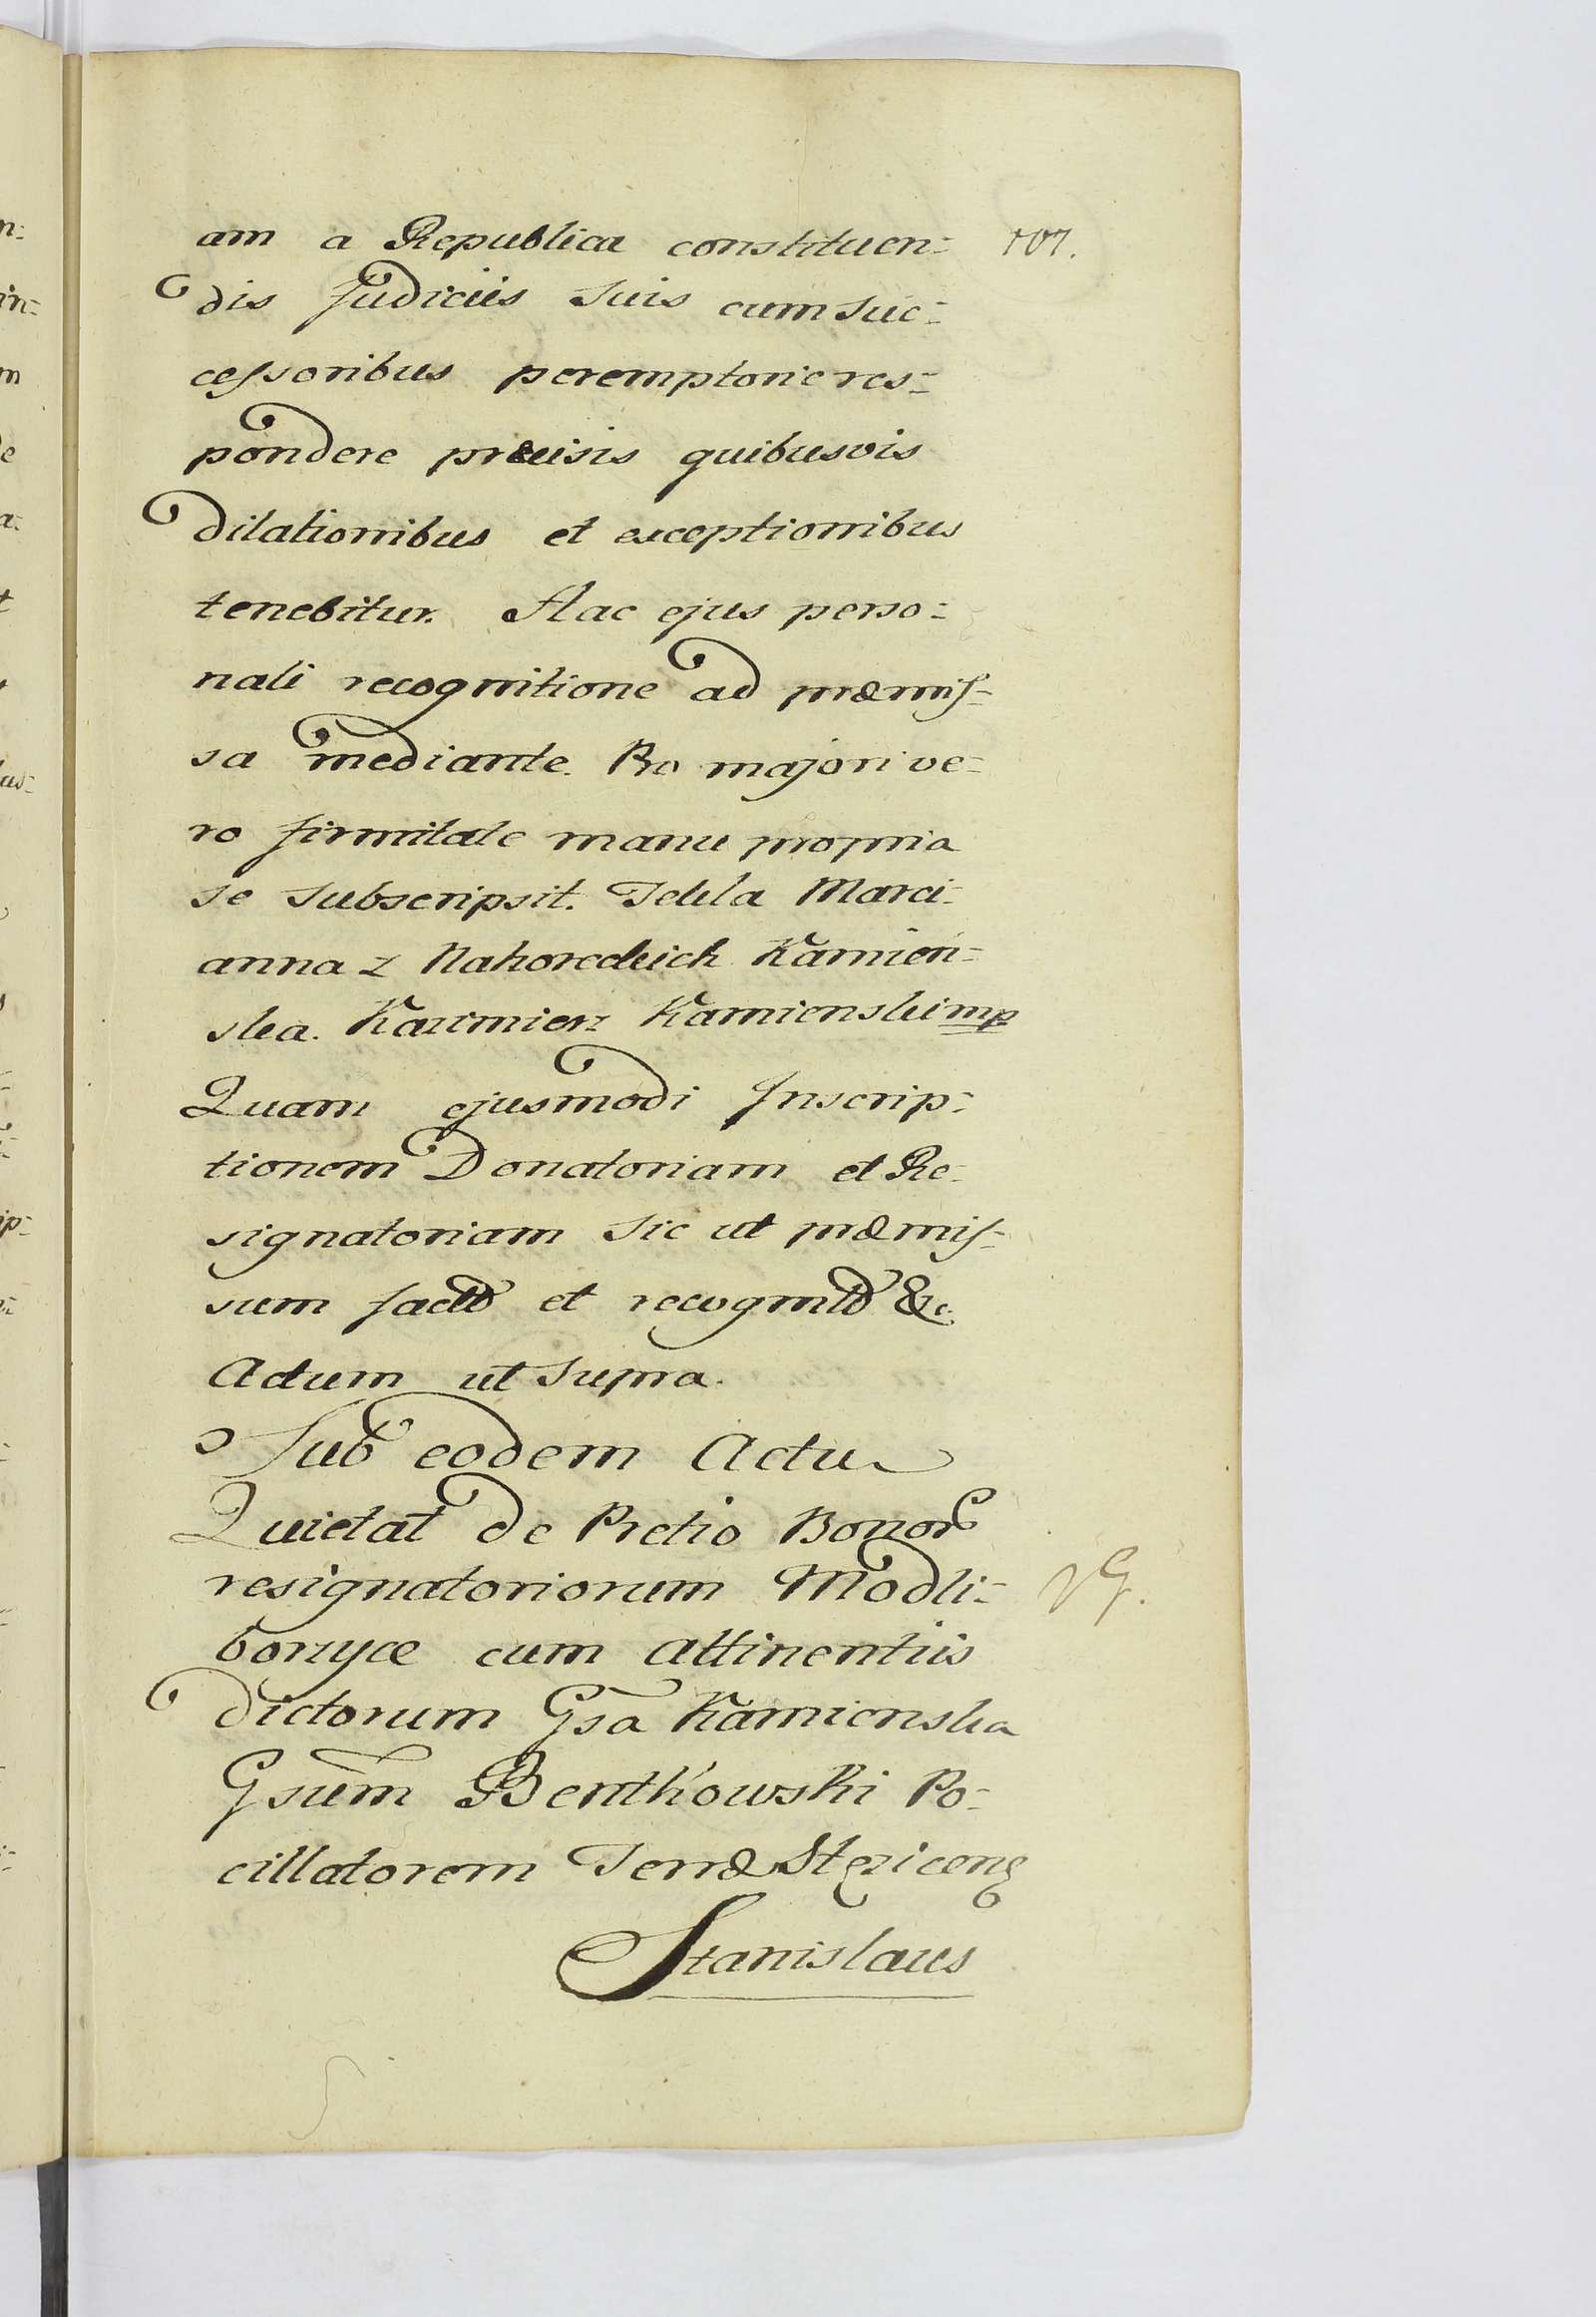 am a Republica constituen= 107.
dis Judiciis suis cum suc=
cessoribus peremptorie res=
pondere præcisis quibusvis
dilationibus et exceptionibus
tenebitur. Hac ejus perso=
nali recognitione ad præmis=
sa mediante. Pro majori ve=
ro firmitate manu propria
se subscripsit. Tekla Marci=
anna z Nahoreckich Kamień=
ska. Kazimierz Kamienski mp
Quam ejusmodi Inscrip=
tionem Donatoriam et Re=
signatoriam sic ut præmis=
sum factā et recognitā &c.
Actum ut supra.
Sub eodem Actu
Quietat de Pretio Bonor
resignatoriorum Modli=
borzyce cum attinentiis
dictorum Gsa Kamienska
Gsum Benthowski Po=
cillatorem Terræ Stęzicens
Stanislaus